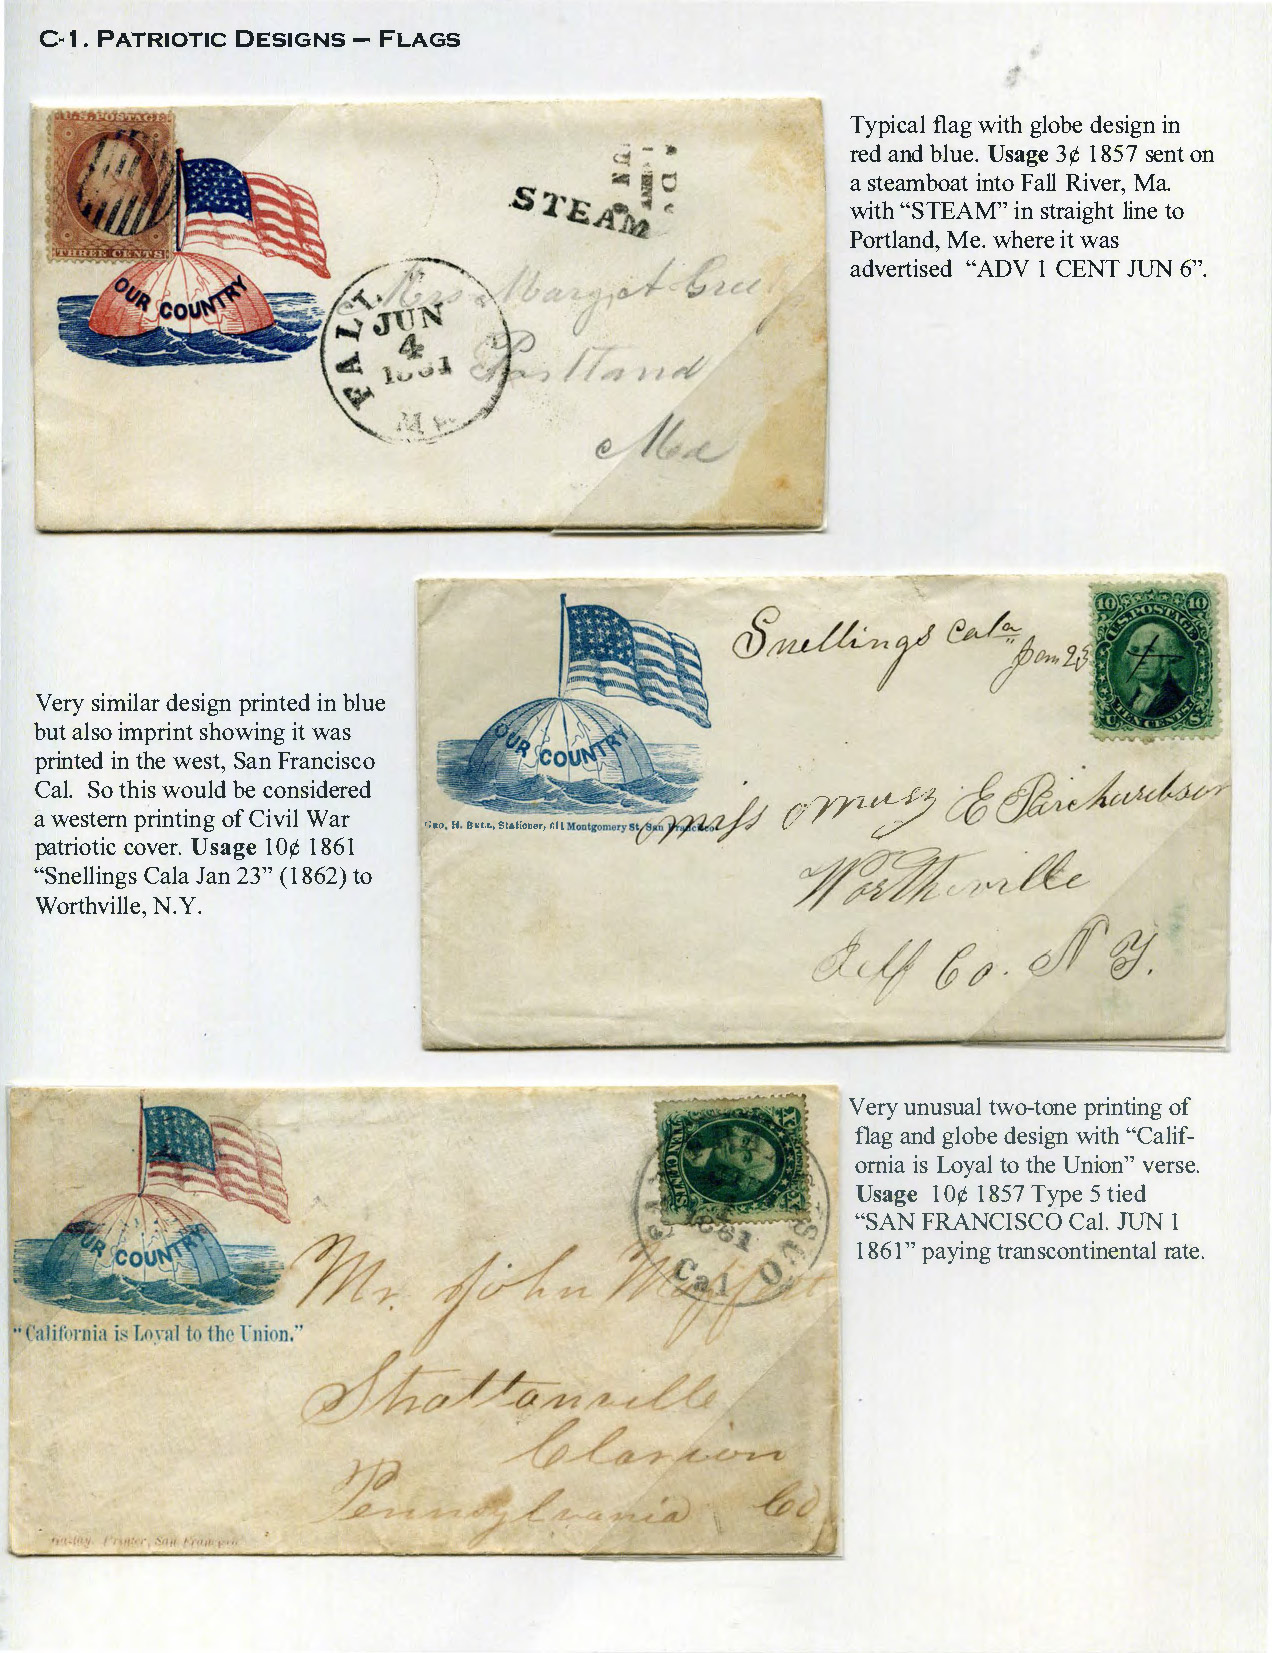 C-1. PATRIOTIC DESIGNS – FLAGS
U.S. POSTAGE
THREE CENTS
OUR COUNTRY
STEAM
JUN
4
1861
FALL
Portland
Me
Typical flag with globe design in
red and blue. Usage 3¢ 1857 sent on
a steamboat into Fall River, Ma.
with “STEAM” in straight line to
Portland, Me. where it was
advertised “ADV 1 CENT JUN 6”.
Very similar design printed in blue
but also imprint showing it was
printed in the west, San Francisco
Cal. So this would be considered
a western printing of Civil War
patriotic cover. Usage 10¢ 1861
“Snellings Cala Jan 23” (1862) to
Worthville, N.Y.
OUR COUNTRY
Geo. H. Bell, Stationer, 611 Montgomery St, San Francisco
Snellings Cala
Jan 23
10 10
U.S. POSTAGE
TEN CENTS
Miss E Richardson
Worthville
Jeff Co. N Y.
OUR COUNTRY
“California is Loyal to the Union.”
1861
Cal
Mr. John
Strattanville
Clarion
Pennsylvania Co
Printer, San Francisco
Very unusual two-tone printing of
flag and globe design with “Calif-
ornia is Loyal to the Union” verse.
Usage 10¢ 1857 Type 5 tied
“SAN FRANCISCO Cal. JUN 1
1861” paying transcontinental rate.